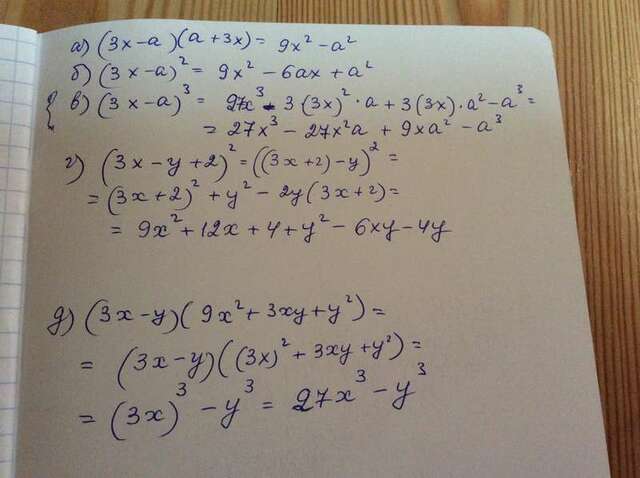 а) (3x-a)(a+3x) = 9x² - a²
б) (3x-a)² = 9x² - 6ax + a²
в) (3x-a)³ = 27x³ - 3(3x)²·a + 3(3x)·a² - a³ =
= 27x³ - 27x²a + 9xa² - a³
г) (3x-y+2)² = ((3x+2)-y)² =
= (3x+2)² + y² - 2y(3x+2) =
= 9x² + 12x + 4 + y² - 6xy - 4y
д) (3x-y)(9x² + 3xy + y²) =
= (3x-y)((3x)² + 3xy + y²) =
= (3x)³ - y³ = 27x³ - y³